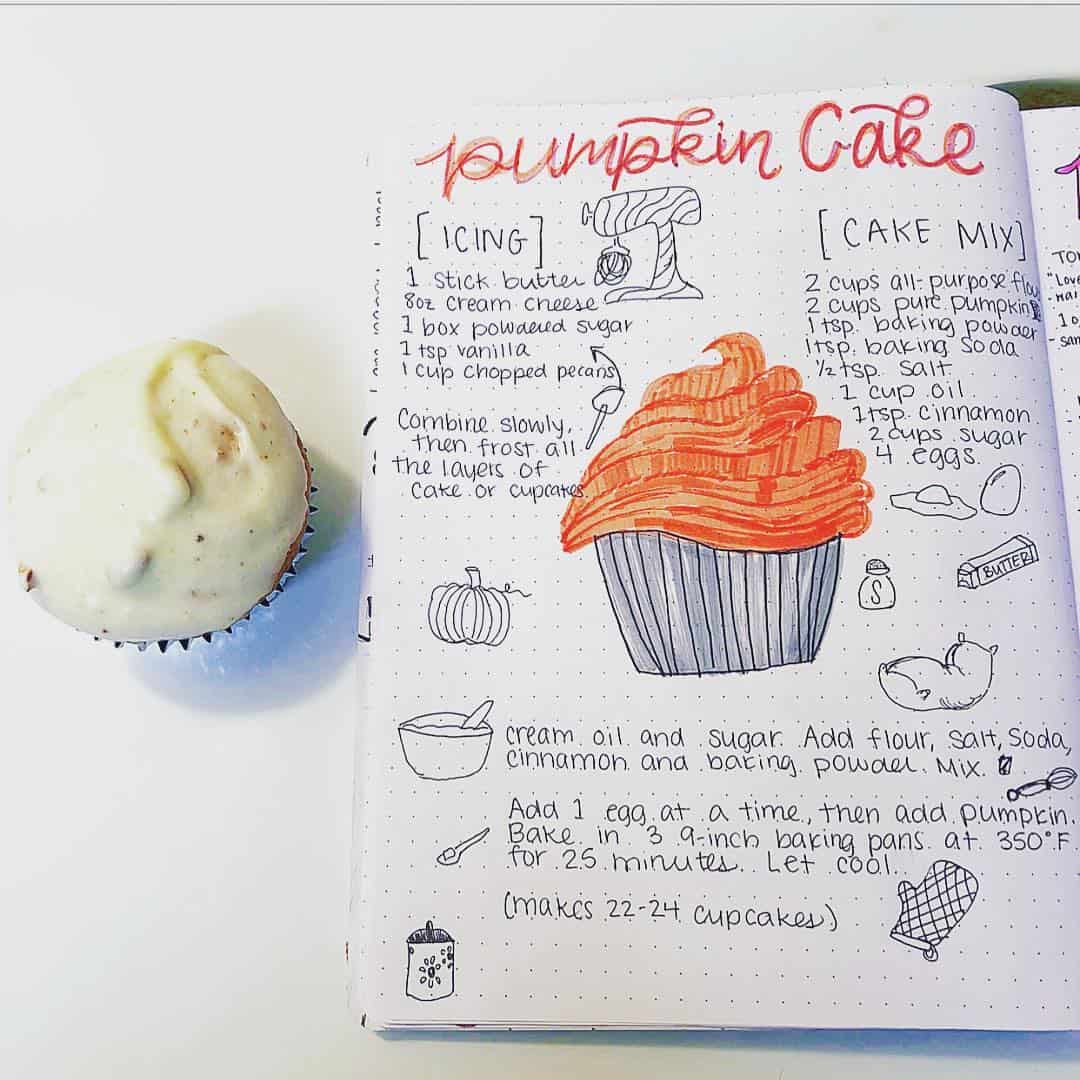 pumpkin Cake
[ICING]
1 stick butter
8oz cream cheese
1 box powdered sugar
1 tsp vanilla
1 cup chopped pecans
Combine slowly,
then frost all
the layers of
cake or cupcakes
[CAKE MIX]
2 cups all-purpose flou
2 cups pure pumpkin
1 tsp. baking powder
1 tsp. baking soda
1/2 tsp. salt
1 cup oil
1 tsp. cinnamon
2 cups sugar
4 eggs
BUTTER
S
cream oil and sugar. Add flour, salt, soda,
cinnamon and baking powder. Mix.
Add 1 egg at a time, then add pumpkin.
Bake in 3 9-inch baking pans at 350°F.
for 25 minutes. Let cool.
(makes 22-24 cupcakes)
"Love